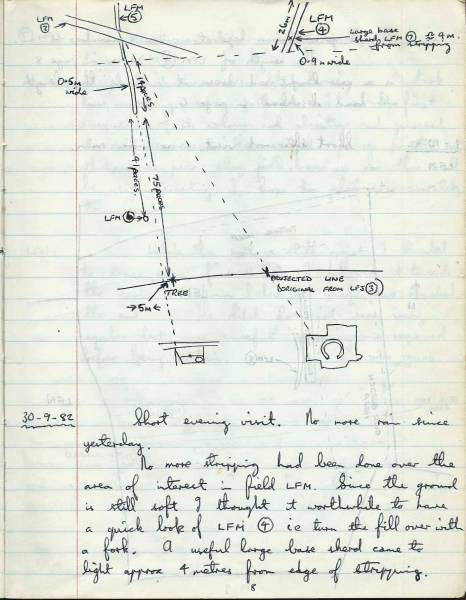 LFM
③
LFM
⑤
26m
LFM
④
large base
sherd LFM ⑦ ≈ 4m.
from stripping
0.9m wide
0.5m
wide
14 paces.
41 paces.
75 paces
LFM ⑥
→5m←
TREE
PROJECTED LINE
(ORIGINAL FROM LFS ③)
30-9-82
Short evening visit. No more rain since
yesterday.
No more stripping had been done over the
area of interest in field LFM. Since the ground
is still soft I thought it worthwhile to have
a quick look at LFM ④ ie turn the fill over with
a fork. A useful large base sherd came to
light approx 4 metres from edge of stripping.
8